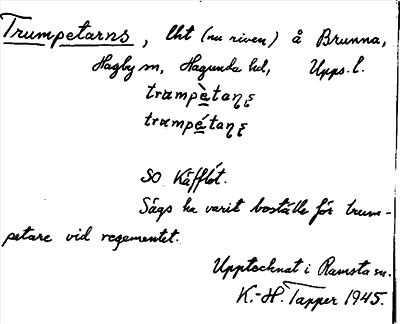 Trumpetarns, lht (nu riven) å Brunna,
Hagby sn, Hagunda hd, Upps. l.
trumpètaꞃʂ
trumpétaꞃʂ
SO Käfflöt.
Sägs ha varit boställe för trum-
petare vid regementet.
Upptecknat i Ramsta sn.
K.-H. Tapper 1945.